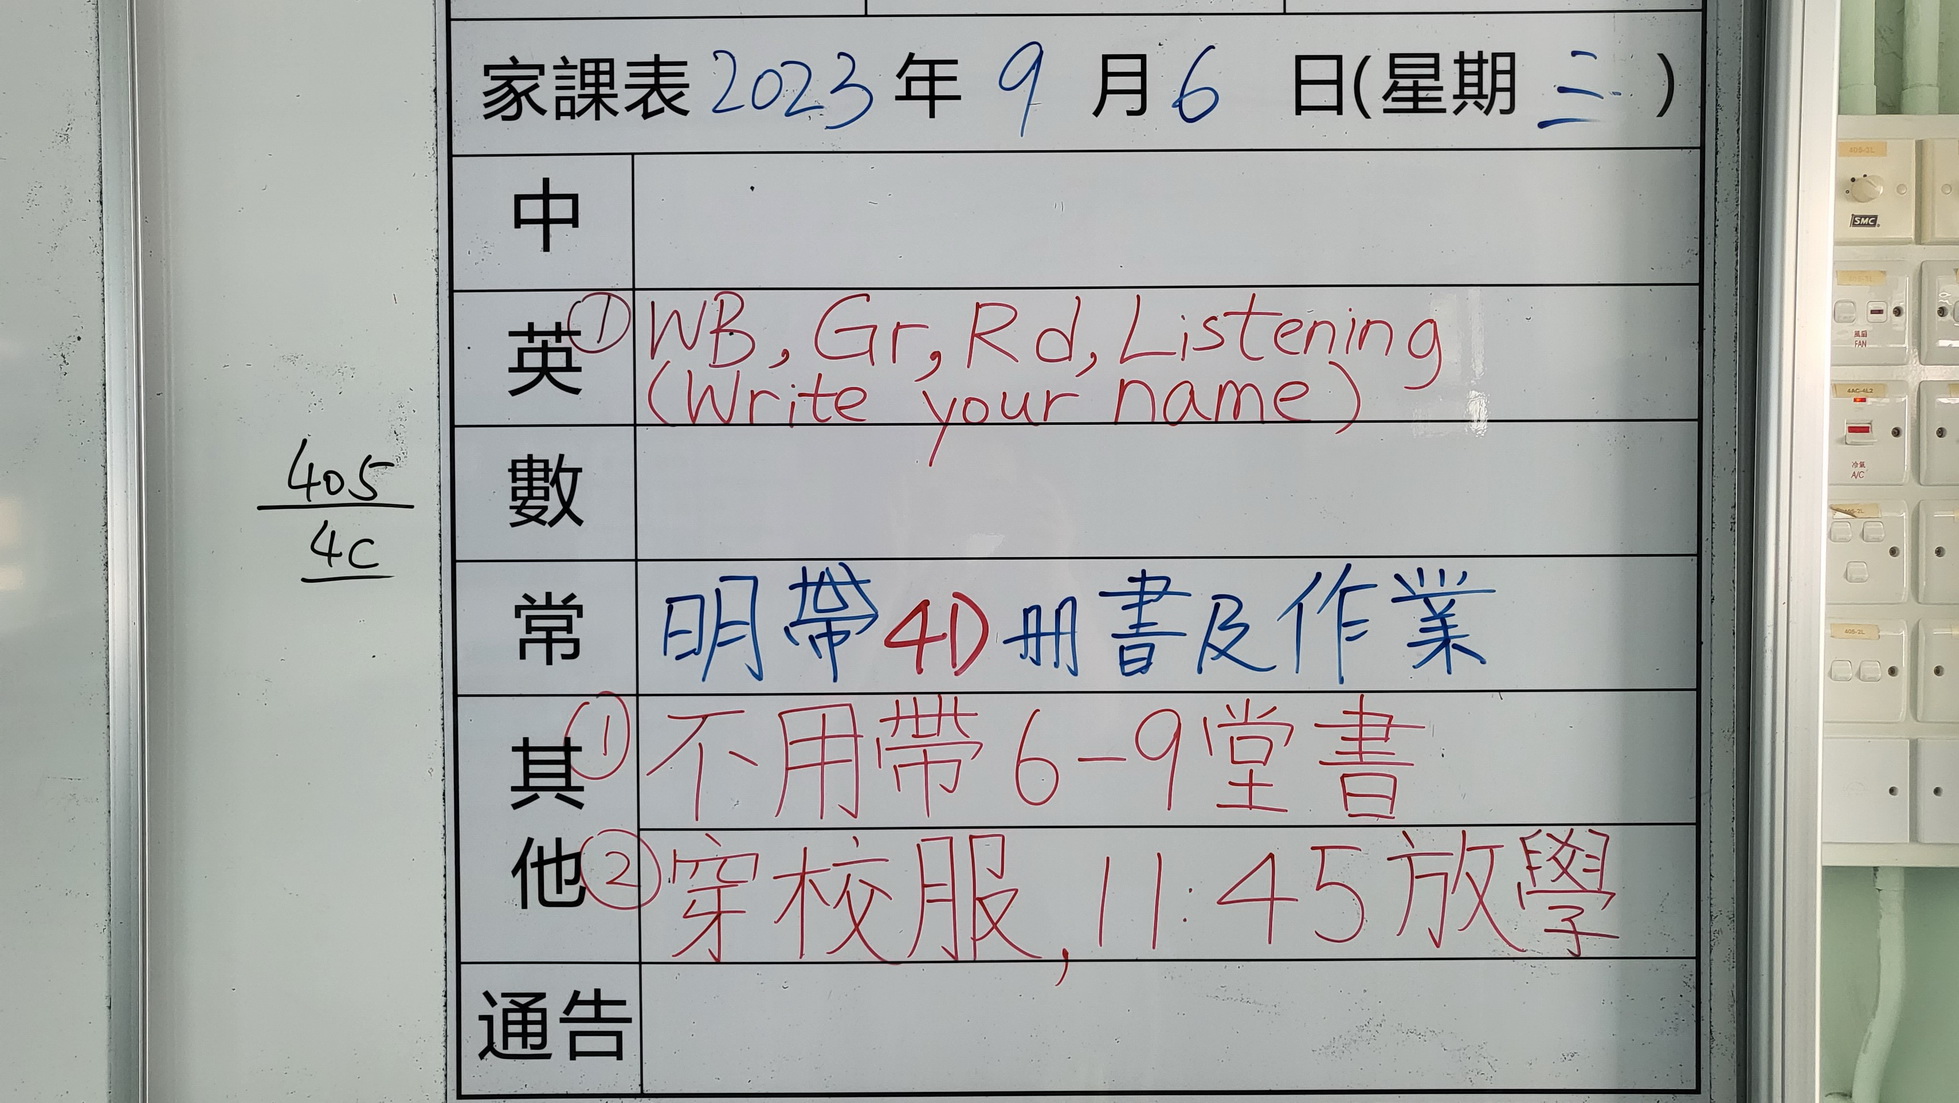 家課表 2023 年 9 月 6 日(星期 三 )
中
英 ① WB, Gr, Rd, Listening
(Write your name)
數
405
4C
常 明帶4D冊書及作業
其他
① 不用帶6-9堂書
② 穿校服, 11:45放學
通告
405-2L
SMC
風扇
FAN
4AC-4L2
冷氣
A/C
405-2L